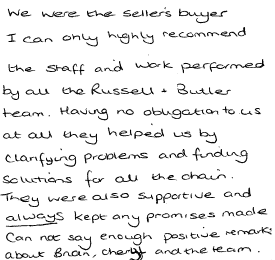 We were the seller's buyer
I can only highly recommend
the staff and work performed
by all the Russell + Butler
team. Having no obligation to us
at all they helped us by
clarifying problems and finding
solutions for all the chain.
They were also supportive and
always kept any promises made
Can not say enough positive remarks
about Brian, cheryl and the team.